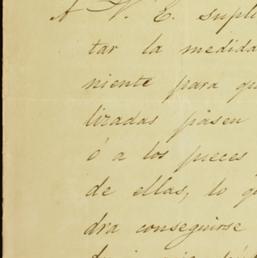 A V. E. supli
tar la medida
niente para qu
lizadas pasen
ó a los jueces
de ellas, lo q
dra conseguirse